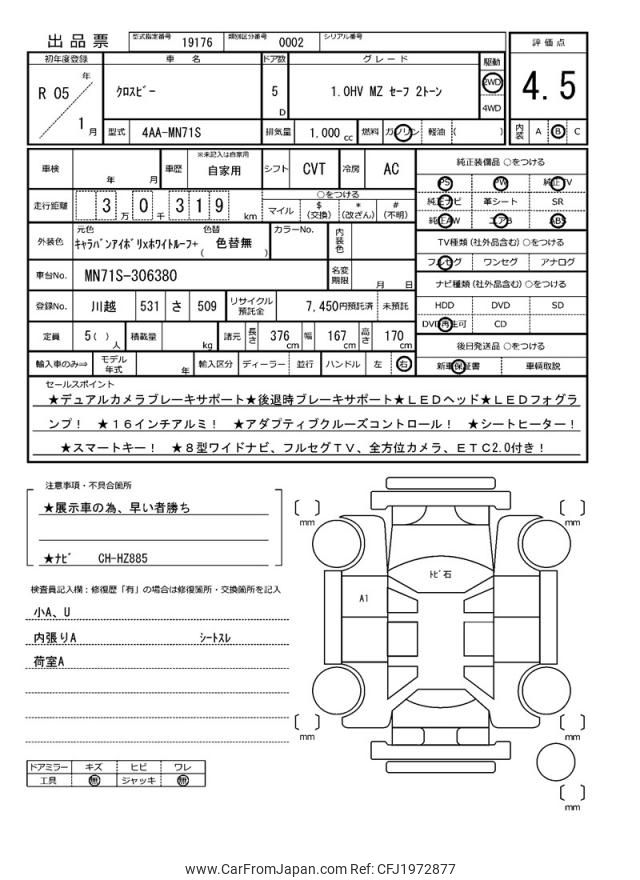 出品票 型式指定番号 19176 類別区分番号 0002 シリアル番号
評価点
4.5
内装 A B C
初年度登録 車名 ドア数 グレード 駆動
R 05 年 1 月
クロスビー 5 D 1.0HV MZ セーフ 2トーン 2WD 4WD
型式 4AA-MN71S 排気量 1.000 cc 燃料 ガソリン 軽油 ( )
車検 年 月 車歴 ※未記入は自家用 自家用 シフト CVT 冷房 AC
走行距離 3 万 0 千 3 1 9 km
○をつける
マイル $ (交換) * (改ざん) # (不明)
外装色 元色 キャラバンアイボリxホワイトルーフ+ 色替 ( 色替無 ) カラーNo. 内装色
車台No. MN71S-306380 名変期限 月 日
登録No. 川越 531 さ 509 リサイクル預託金 7,450円預託済 未預託
定員 5( ) 人 積載量 kg 諸元 長さ 376 cm 幅 167 cm 高さ 170 cm
輸入車のみ⇒ モデル年式 年 輸入区分 ディーラー 並行 ハンドル 左 右
純正装備品 ○をつける
PS PW 純正TV
純正ナビ 革シート SR
純正AW エアB ABS
TV種類 (社外品含む) ○をつける
フルセグ ワンセグ アナログ
ナビ種類 (社外品含む) ○をつける
HDD DVD SD
DVD再生可 CD
後日発送品 ○をつける
新車保証書 車輌取説
セールスポイント
★デュアルカメラブレーキサポート★後退時ブレーキサポート★ＬＥＤヘッド★ＬＥＤフォグラ
ンプ！ ★１６インチアルミ！ ★アダプティブクルーズコントロール！ ★シートヒーター！
★スマートキー！ ★８型ワイドナビ、フルセグＴＶ、全方位カメラ、ＥＴＣ2.0付き！
注意事項・不具合箇所
★展示車の為、早い者勝ち
★ナビ CH-HZ885
検査員記入欄：修復歴「有」の場合は修復箇所・交換箇所を記入
小A、U
内張りA シートスレ
荷室A
ドアミラー キズ ヒビ ワレ
工具 無 ジャッキ 無
mm
mm
トビ石
A1
mm
mm
mm
www.CarFromJapan.com Ref: CFJ1972877